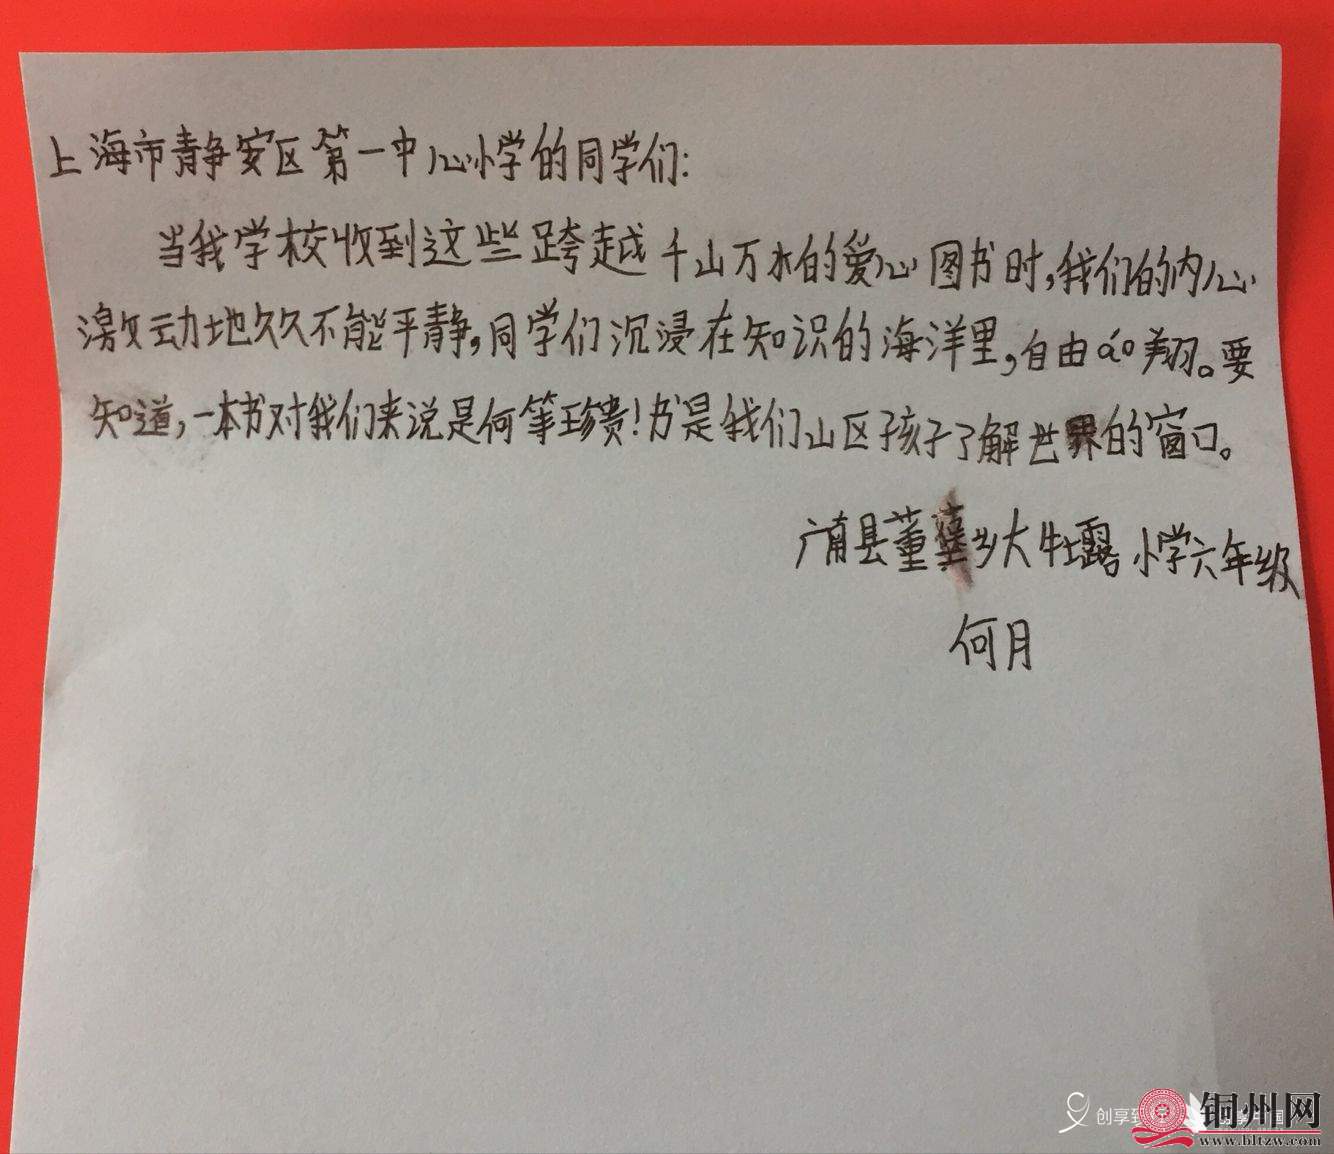 上海市静安区第一中心小学的同学们:
当我学校收到这些跨越千山万水的爱心图书时,我们的内心
激动地久久不能平静,同学们沉浸在知识的海洋里,自由áo翔。要
知道,一本书对我们来说是何等珍贵!书是我们山区孩子了解世界的窗口。
广南县董堡乡大牡露小学六年级
何月
创享
铜州网
www.bltzw.com